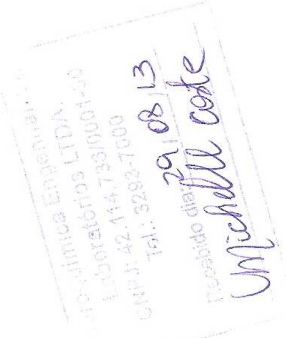 Engenharia
Laboratórios LTDA
CNPJ: 42.114.733/0001-
Tel.: 3293-7000
Recebido dia: 29/08/13
Michelle